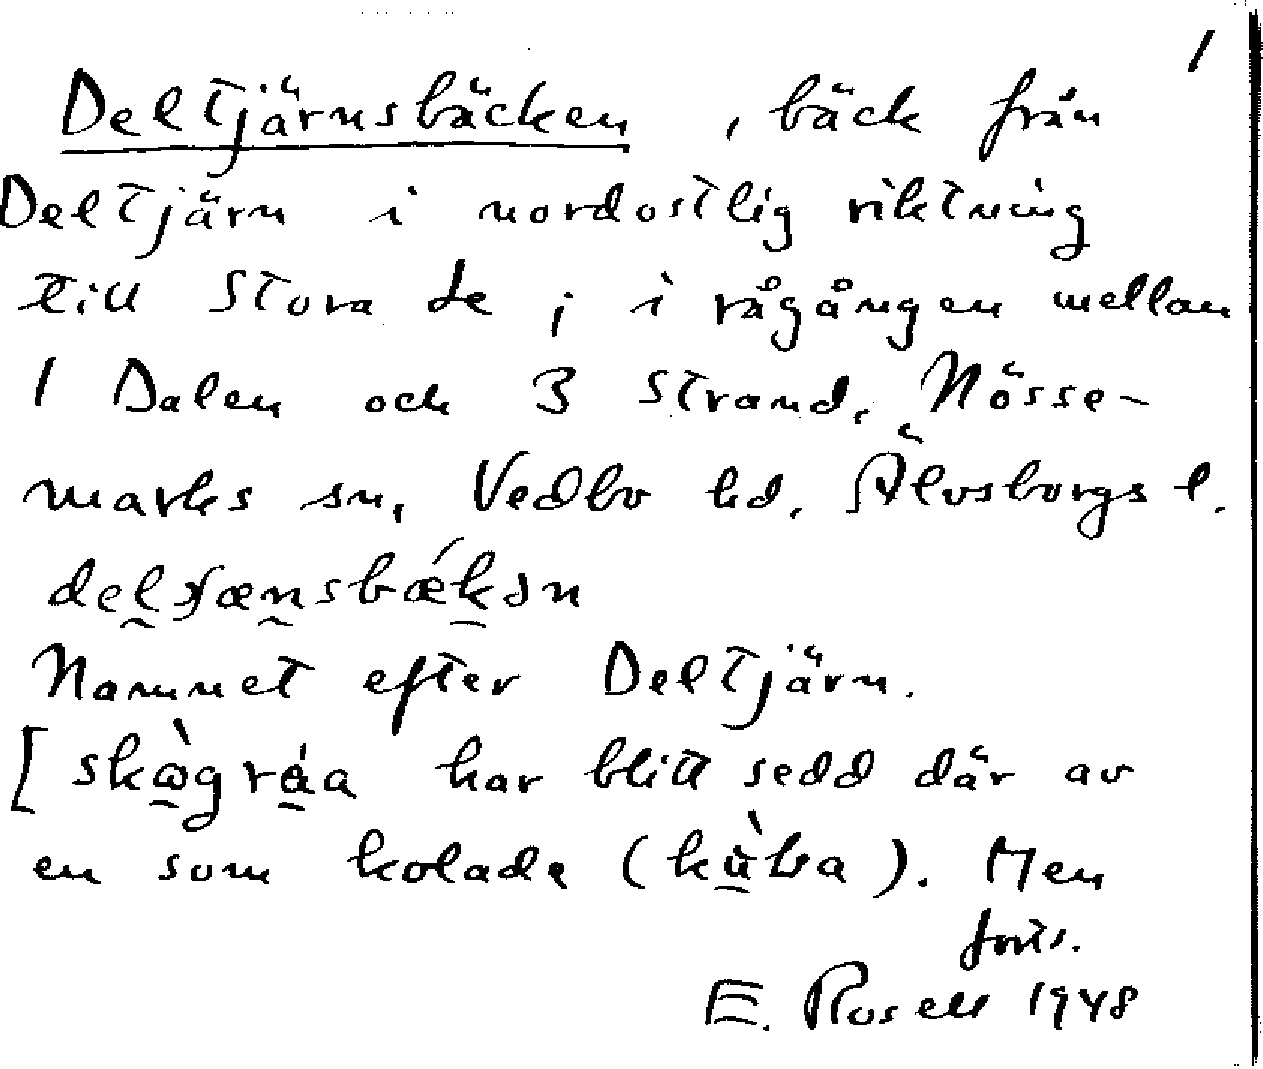 1
Deltjärnsbäcken, bäck från
Deltjärn i nordostlig riktning
till Stora Le ; i rågången mellan
1 Dalen och 3 Strand, Nösse-
marks sn, Vedbo hd, Älvsborgs l.
Namnet efter Deltjärn.
[ skògráa har blitt sedd där av
en som kolade (kùɫa). Men
forts.
E. Rosell 1948